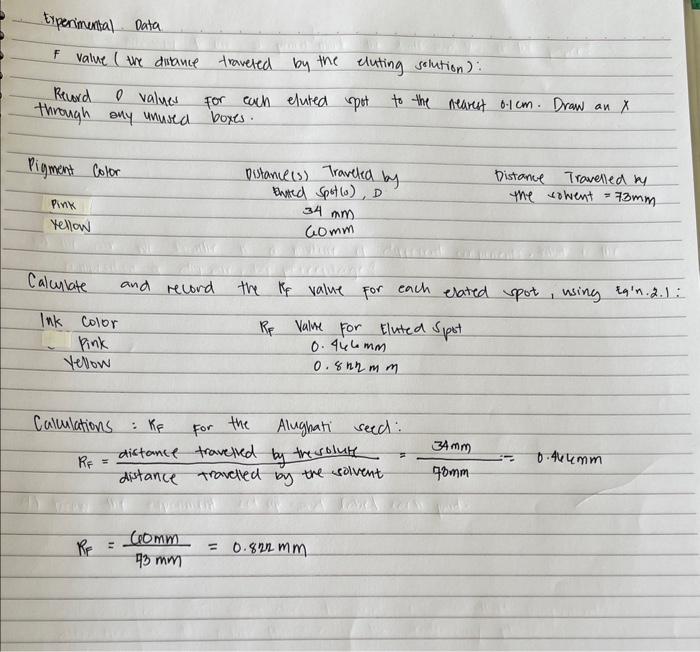 Experimental Data
F value (the distance traveled by the eluting solution):
Record D values for each eluted spot to the nearest 0.1cm. Draw an X
through any unused boxes.
Pigment Color Distance(s) Traveled by Eluted Spot(s), D Distance Travelled by the solvent = 73mm
Pink 34 mm
Yellow 60mm
Calculate and record the Rf value for each elated spot, using Eq'n. 2.1:
Ink Color RF Value For Eluted Spot
Pink 0.466mm
Yellow 0.822mm
Calculations: RF For the Alugbati seed:
RF = distance travelled by the solute / distance travelled by the solvent = 34mm / 73mm = 0.466mm
RF = 60mm / 73mm = 0.822mm